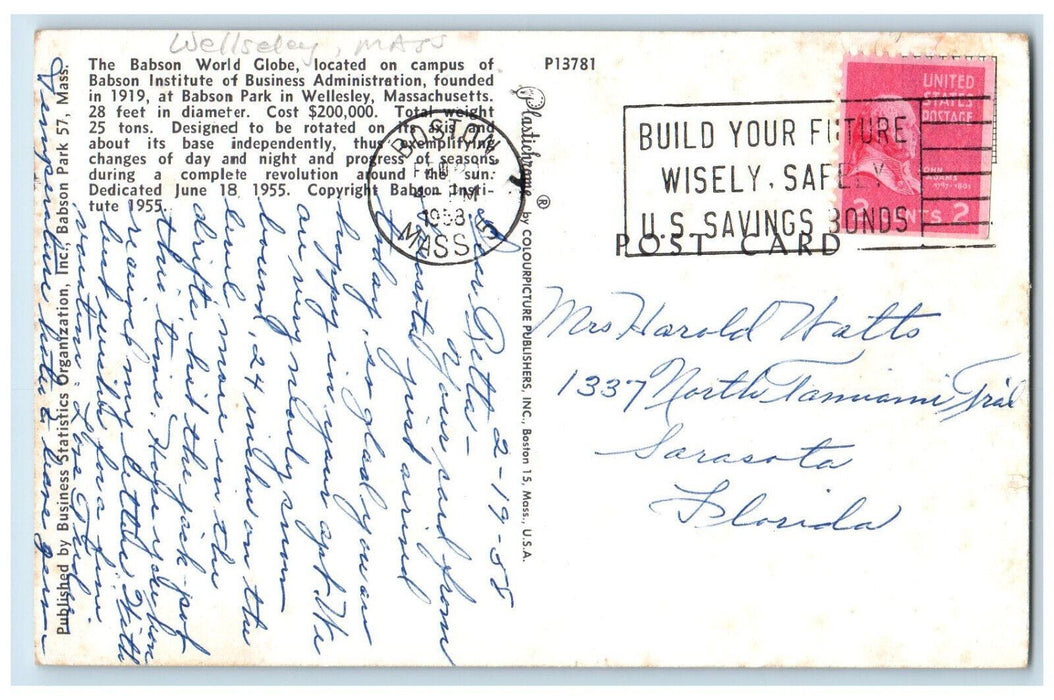 Wellseley, MASS
The Babson World Globe, located on campus of
Babson Institute of Business Administration, founded
in 1919, at Babson Park in Wellesley, Massachusetts.
28 feet in diameter. Cost $200,000. Total weight
25 tons. Designed to be rotated on its axis and
about its base independently, thus exemplifying
changes of day and night and progress of seasons
during a complete revolution around the sun.
Dedicated June 18 1955. Copyright Babson Insti-
tute 1955.
Published by Business Statistics Organization, Inc., Babson Park 57, Mass.
P13781
Plastichrome ® by COLOURPICTURE PUBLISHERS, INC., Boston 15, Mass., U.S.A.
BOSTON
PM
1958
MASS.
BUILD YOUR FUTURE
WISELY, SAFELY
U.S. SAVINGS BONDS
UNITED
STATES
POSTAGE
JOHN
ADAMS
1797-1801
2 CENTS 2
POST CARD
2-19-58
Dear Betta-
Your card from
Crystal just arrived
today, so glad you are
happy in your apt. We
are very nicely snow
bound, 24 inches on the
level, more in the
drifts, hit the jack-pot
this time. Hope you
received my letter. Will
but write for a few
Love
Temperature here
Mrs Harold Watts
1337 North Tamiami Trail
Sarasota
Florida